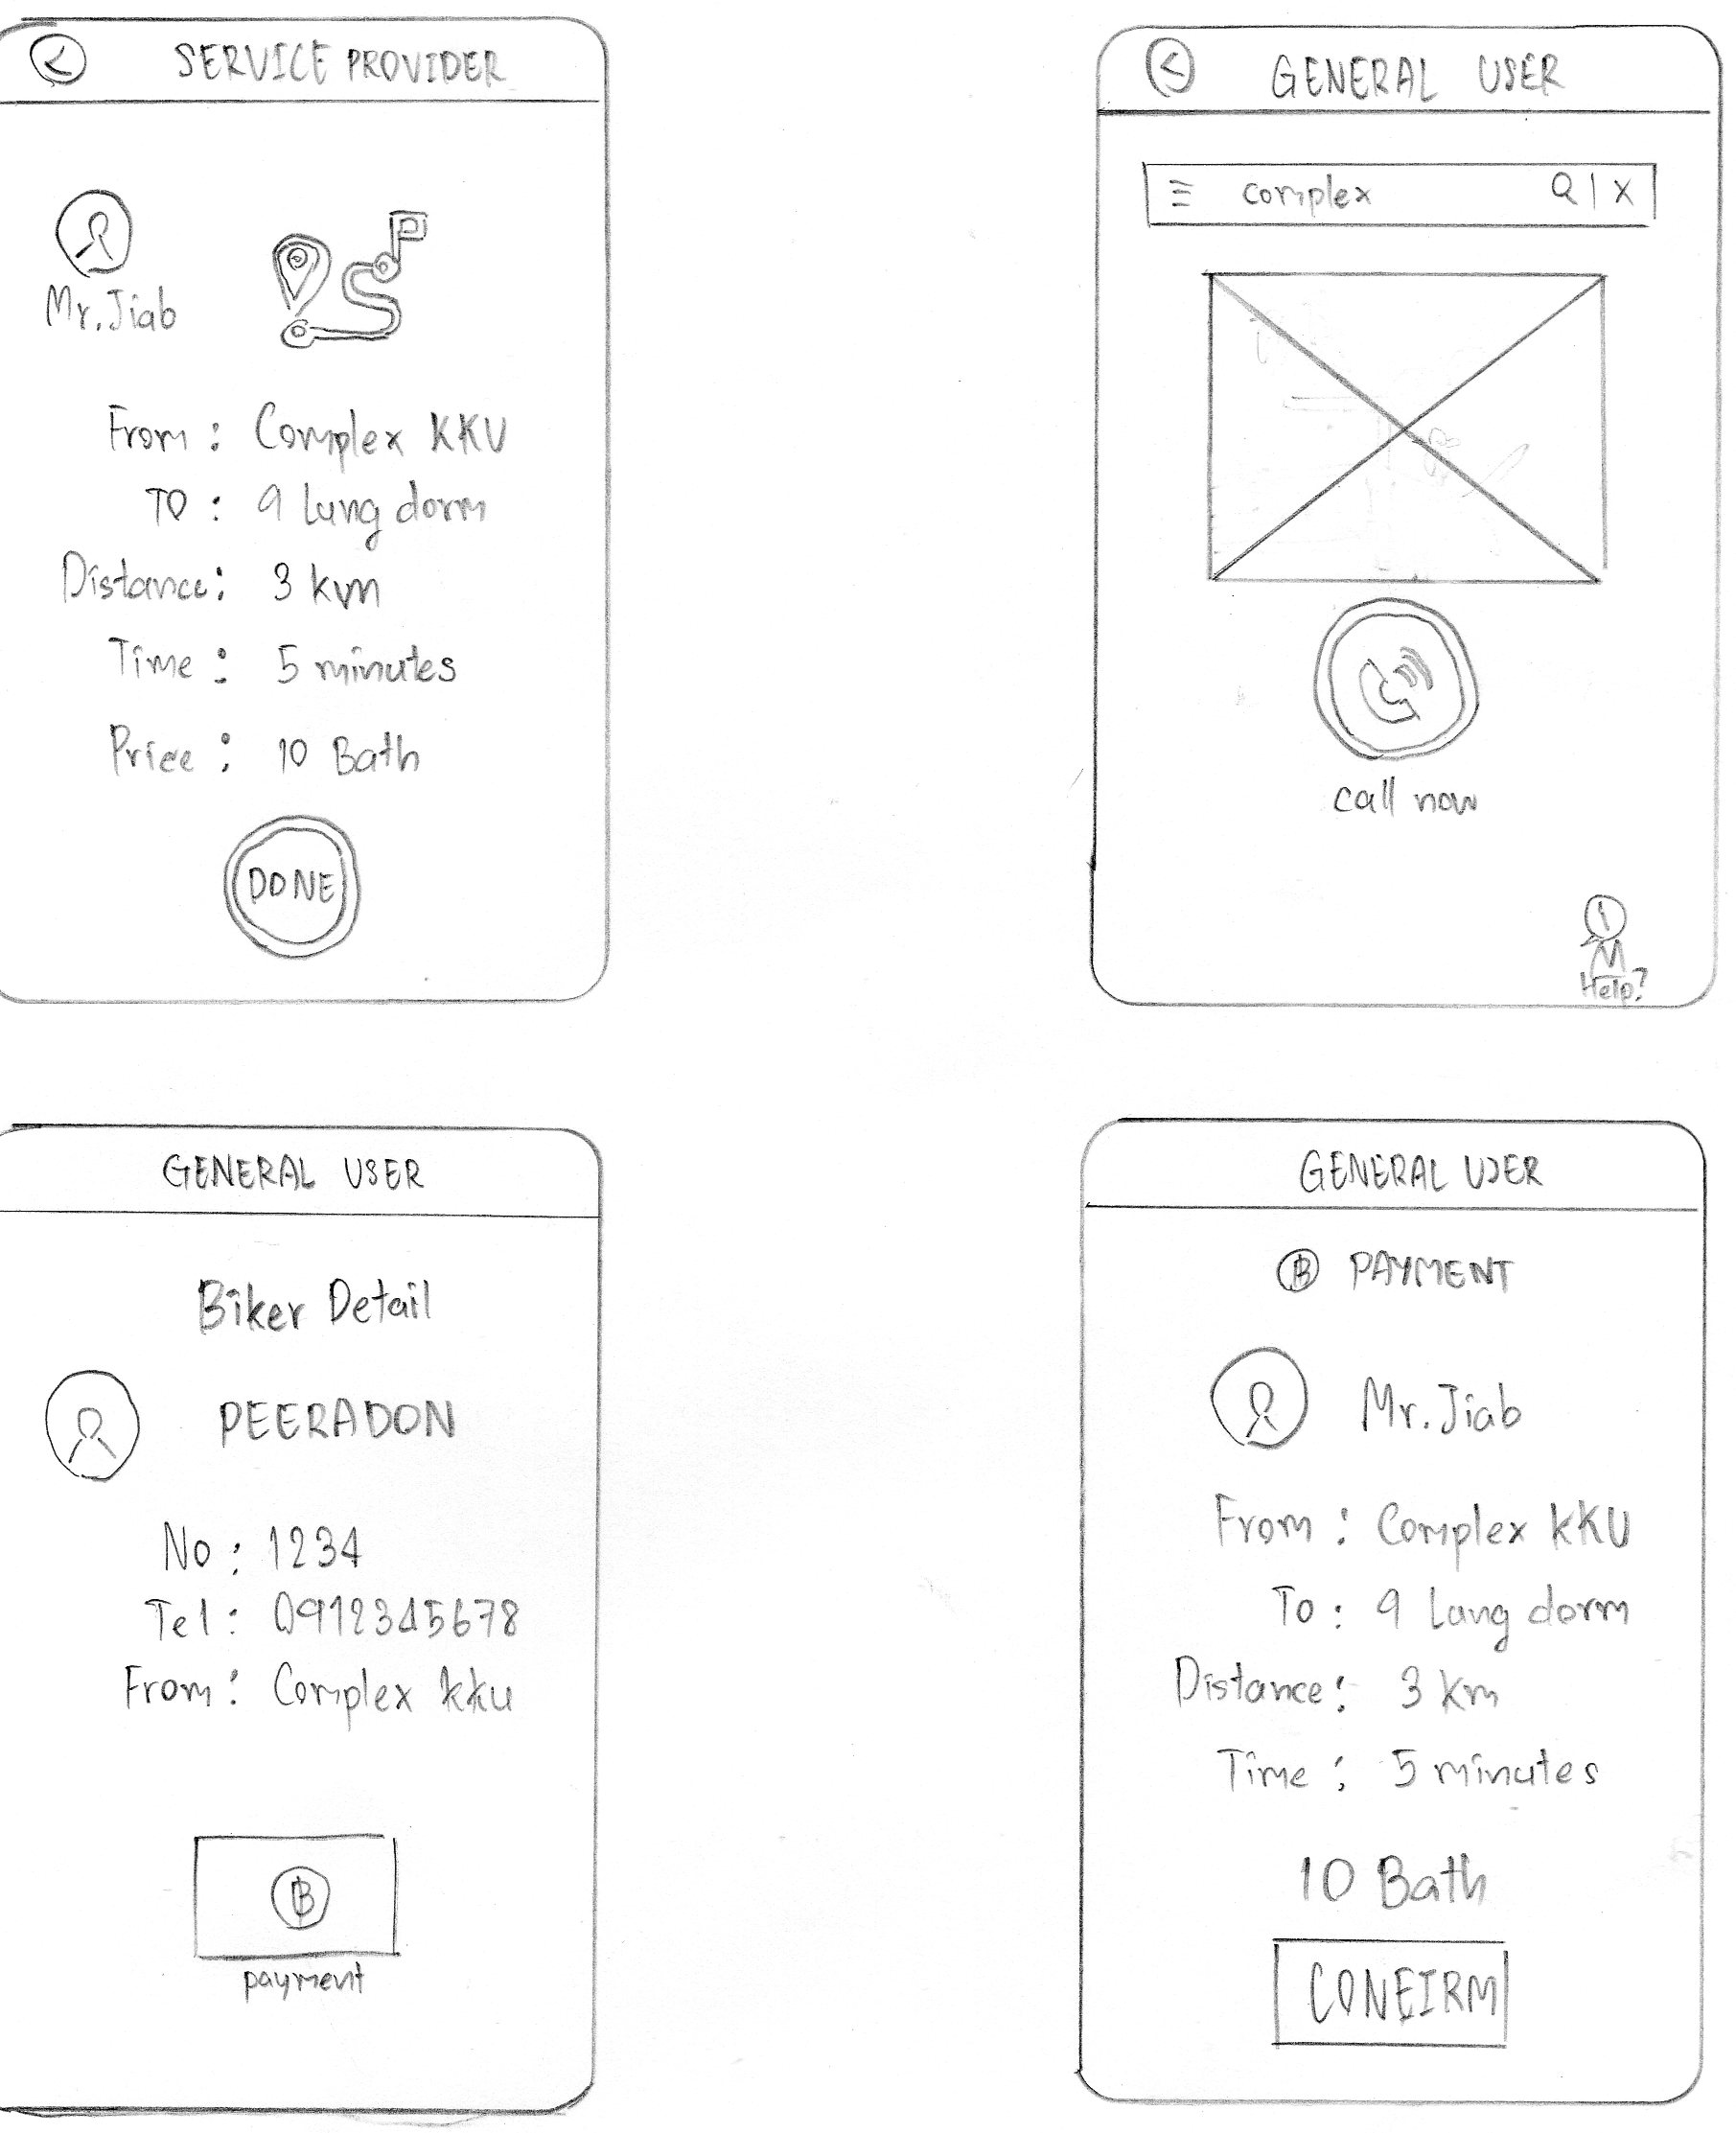 SERVICE PROVIDER
Mr. Jiab
From : Complex KKU
TO : 9 Lung dorm
Distance : 3 km
Time : 5 minutes
Price : 10 Bath
DONE
GENERAL USER
complex
call now
Help?
GENERAL USER
Biker Detail
PEERADON
No : 1234
Tel : 0912345678
From : Complex kku
฿
payment
GENERAL USER
฿ PAYMENT
Mr. Jiab
From : Complex KKU
To : 9 Lung dorm
Distance : 3 Km
Time : 5 minutes
10 Bath
CONFIRM